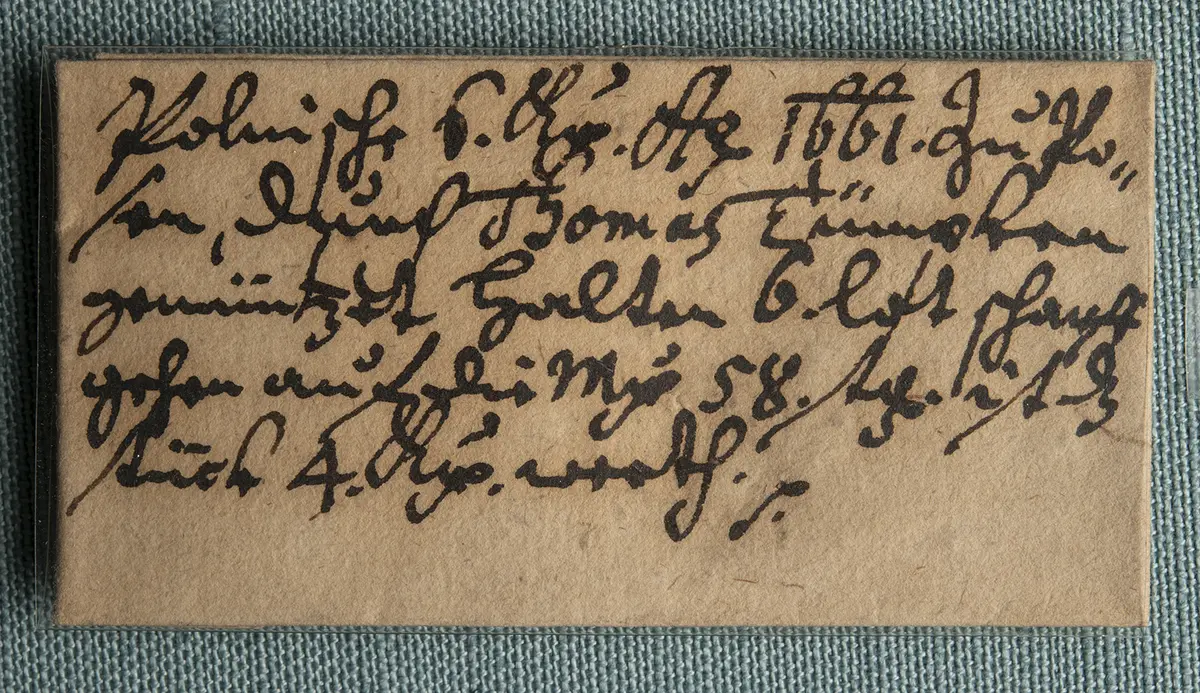 Polnische 6. Kr. Stk 1661. Zu Po=
sen, durch Thomas Tümpken
gemüntzett Halten 6. loht scharff
gehen auf die Mr 58. stk. ist dz
stück 4. Kr. werth.